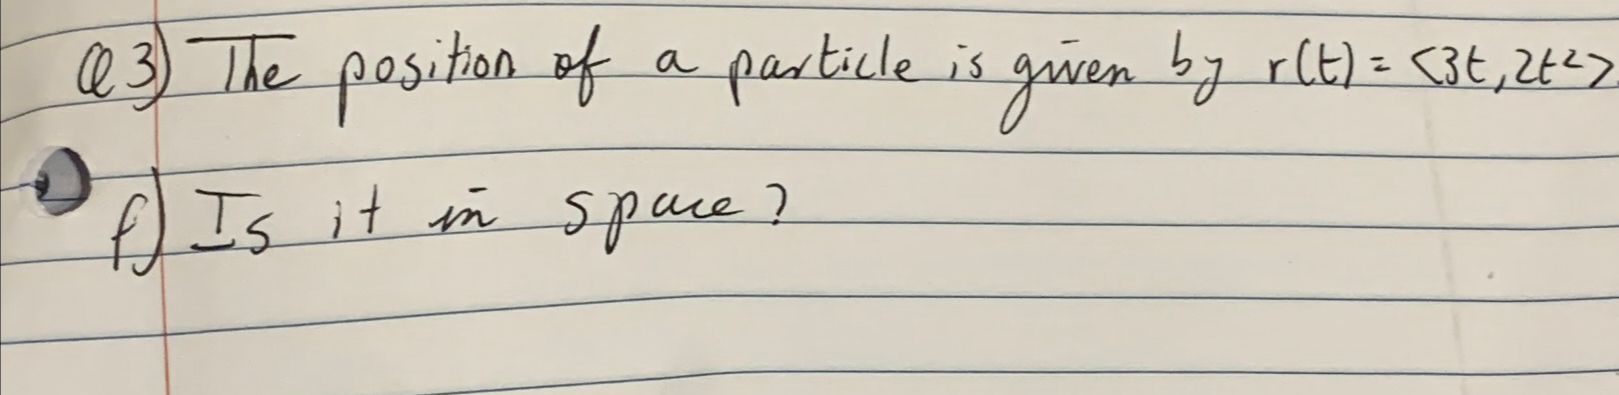 Q3) The position of a particle is given by r(t) = <3t, 2t²>
f) Is it in space?